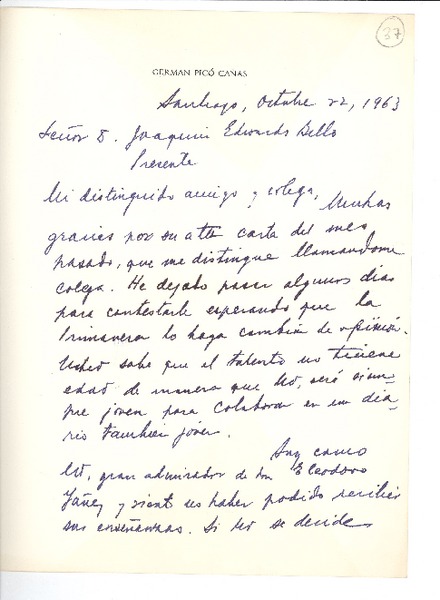 37
GERMAN PICÓ CAÑAS
Santiago, Octubre 22, 1963
Señor D. Joaquin Edwards Bello
Presente
Mi distinguido amigo y colega,
Muchas
gracias por su atta carta del mes
pasado, que me distingue llamandome
colega. He dejado pasar algunos dias
para contestarle esperando que la
Primavera lo haga cambiar de opinión.
Usted sabe que el talento no tiene
edad de manera que Ud, será siem-
pre joven para colaborar en un dia-
rio tambien jóven.
Soy como
Ud, gran admirador de don Eleodoro
Yáñez y siento no haber podido recibir
sus enseñanzas. Si Ud se decide